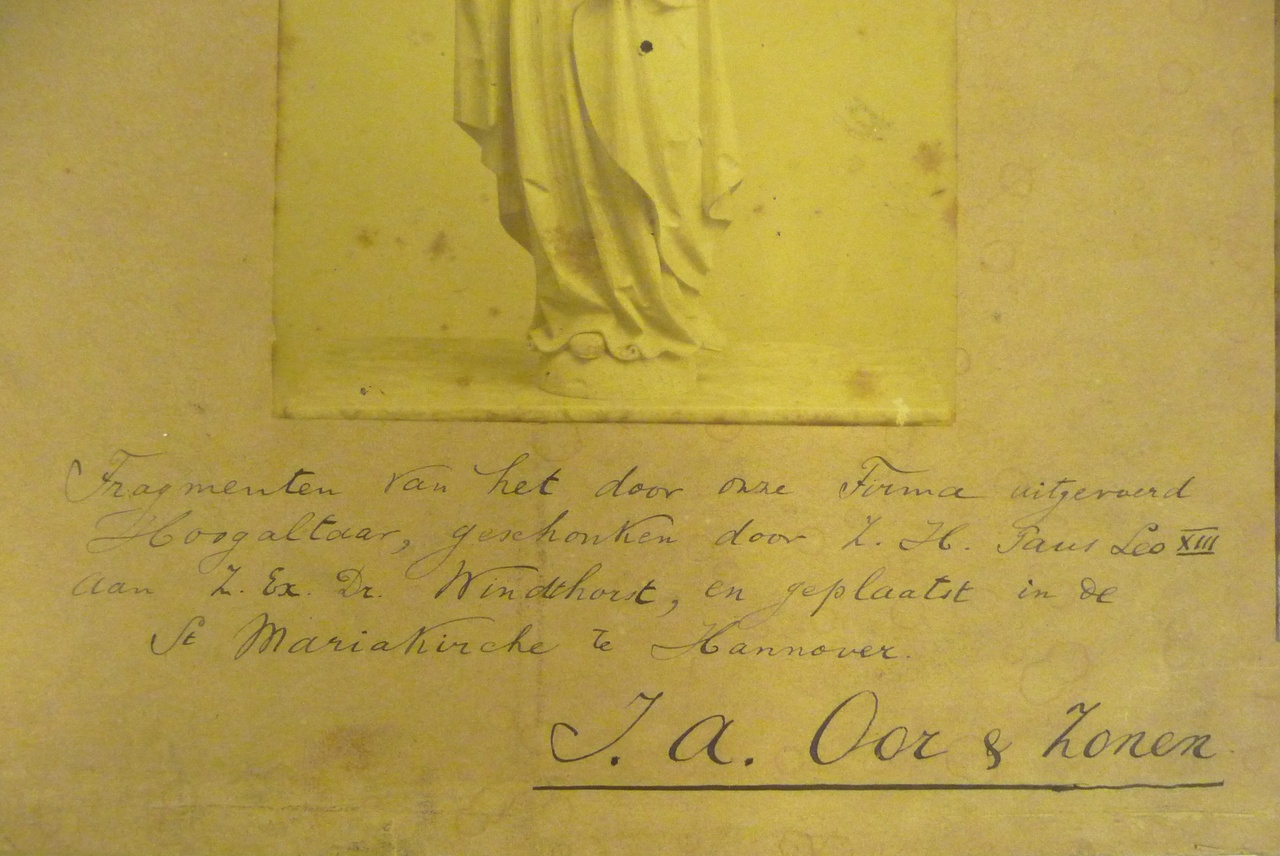 Fragmenten van het door onze Firma uitgevoerd
Hoogaltaar, geschonken door Z. H. Paus Leo XIII
aan Z. Ex. Dr. Windthorst, en geplaatst in de
St Mariakirche te Hannover.
J. A. Oor & Zonen